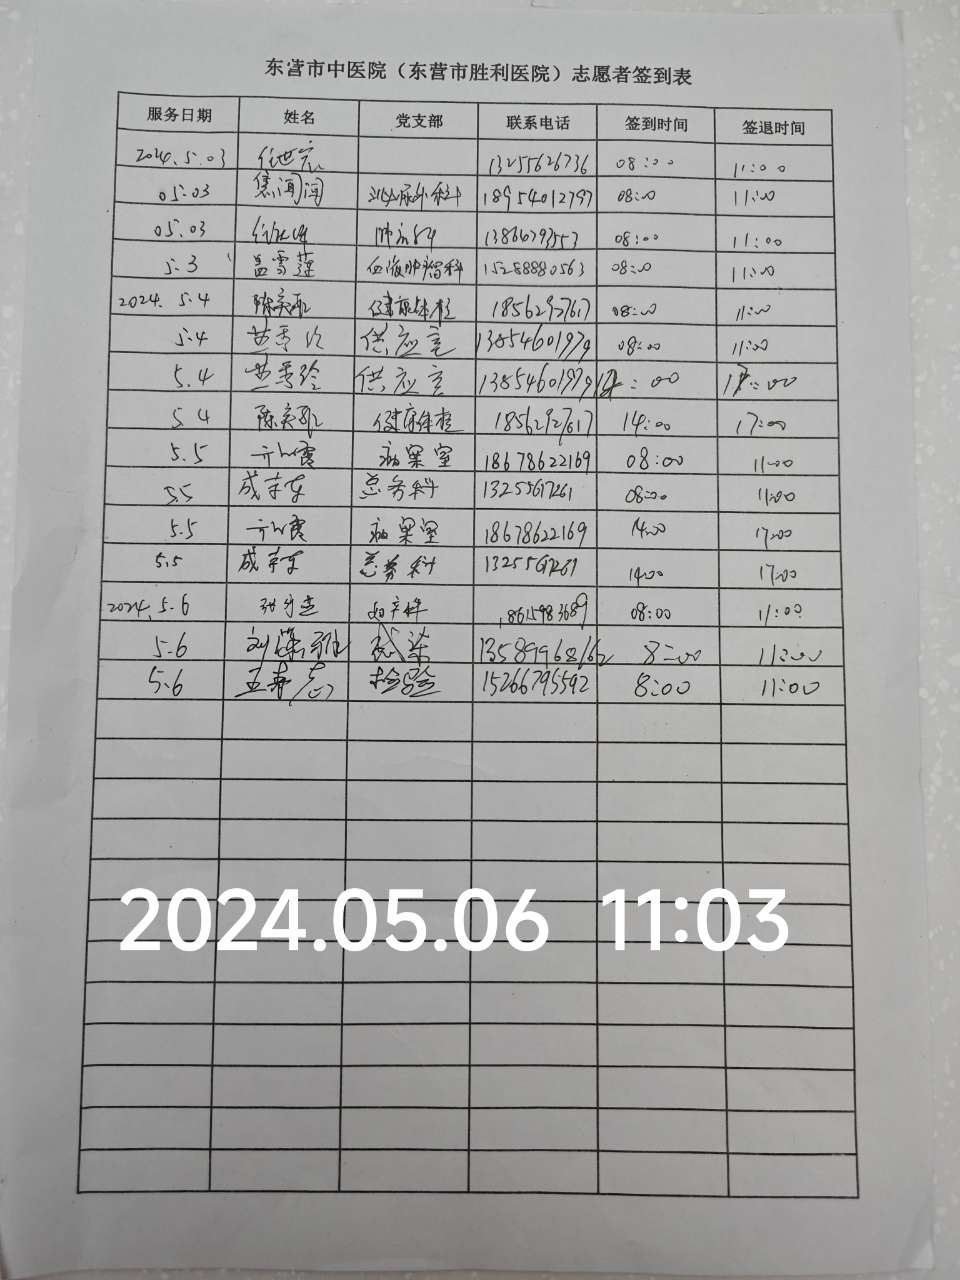 东营市中医院（东营市胜利医院）志愿者签到表
服务日期 姓名 党支部 联系电话 签到时间 签退时间
2024.5.03 13255626736 08:00 11:00
05.03 泌尿外科 18954012797 08:00 11:00
05.03 08:00 11:00
5.3 孟雪莲 血液肿瘤科 15288880563 08:00 11:00
2024.5.4 健康体检 18562927617 08:00 11:00
5.4 供应室 13854601979 08:00 11:00
5.4 供应室 13854601979 14:00 17:00
5.4 健康体检 18562927617 14:00 17:00
5.5 病案室 18678622169 08:00 11:00
5.5 总务科 08:00 11:00
5.5 病案室 18678622169 14:00 17:00
5.5 总务科 14:00 17:00
2024.5.6 妇产科 18615983689 08:00 11:00
5.6 感染 13589968162 8:00 11:00
5.6 王寿志 检验 15266795592 8:00 11:00
2024.05.06 11:03